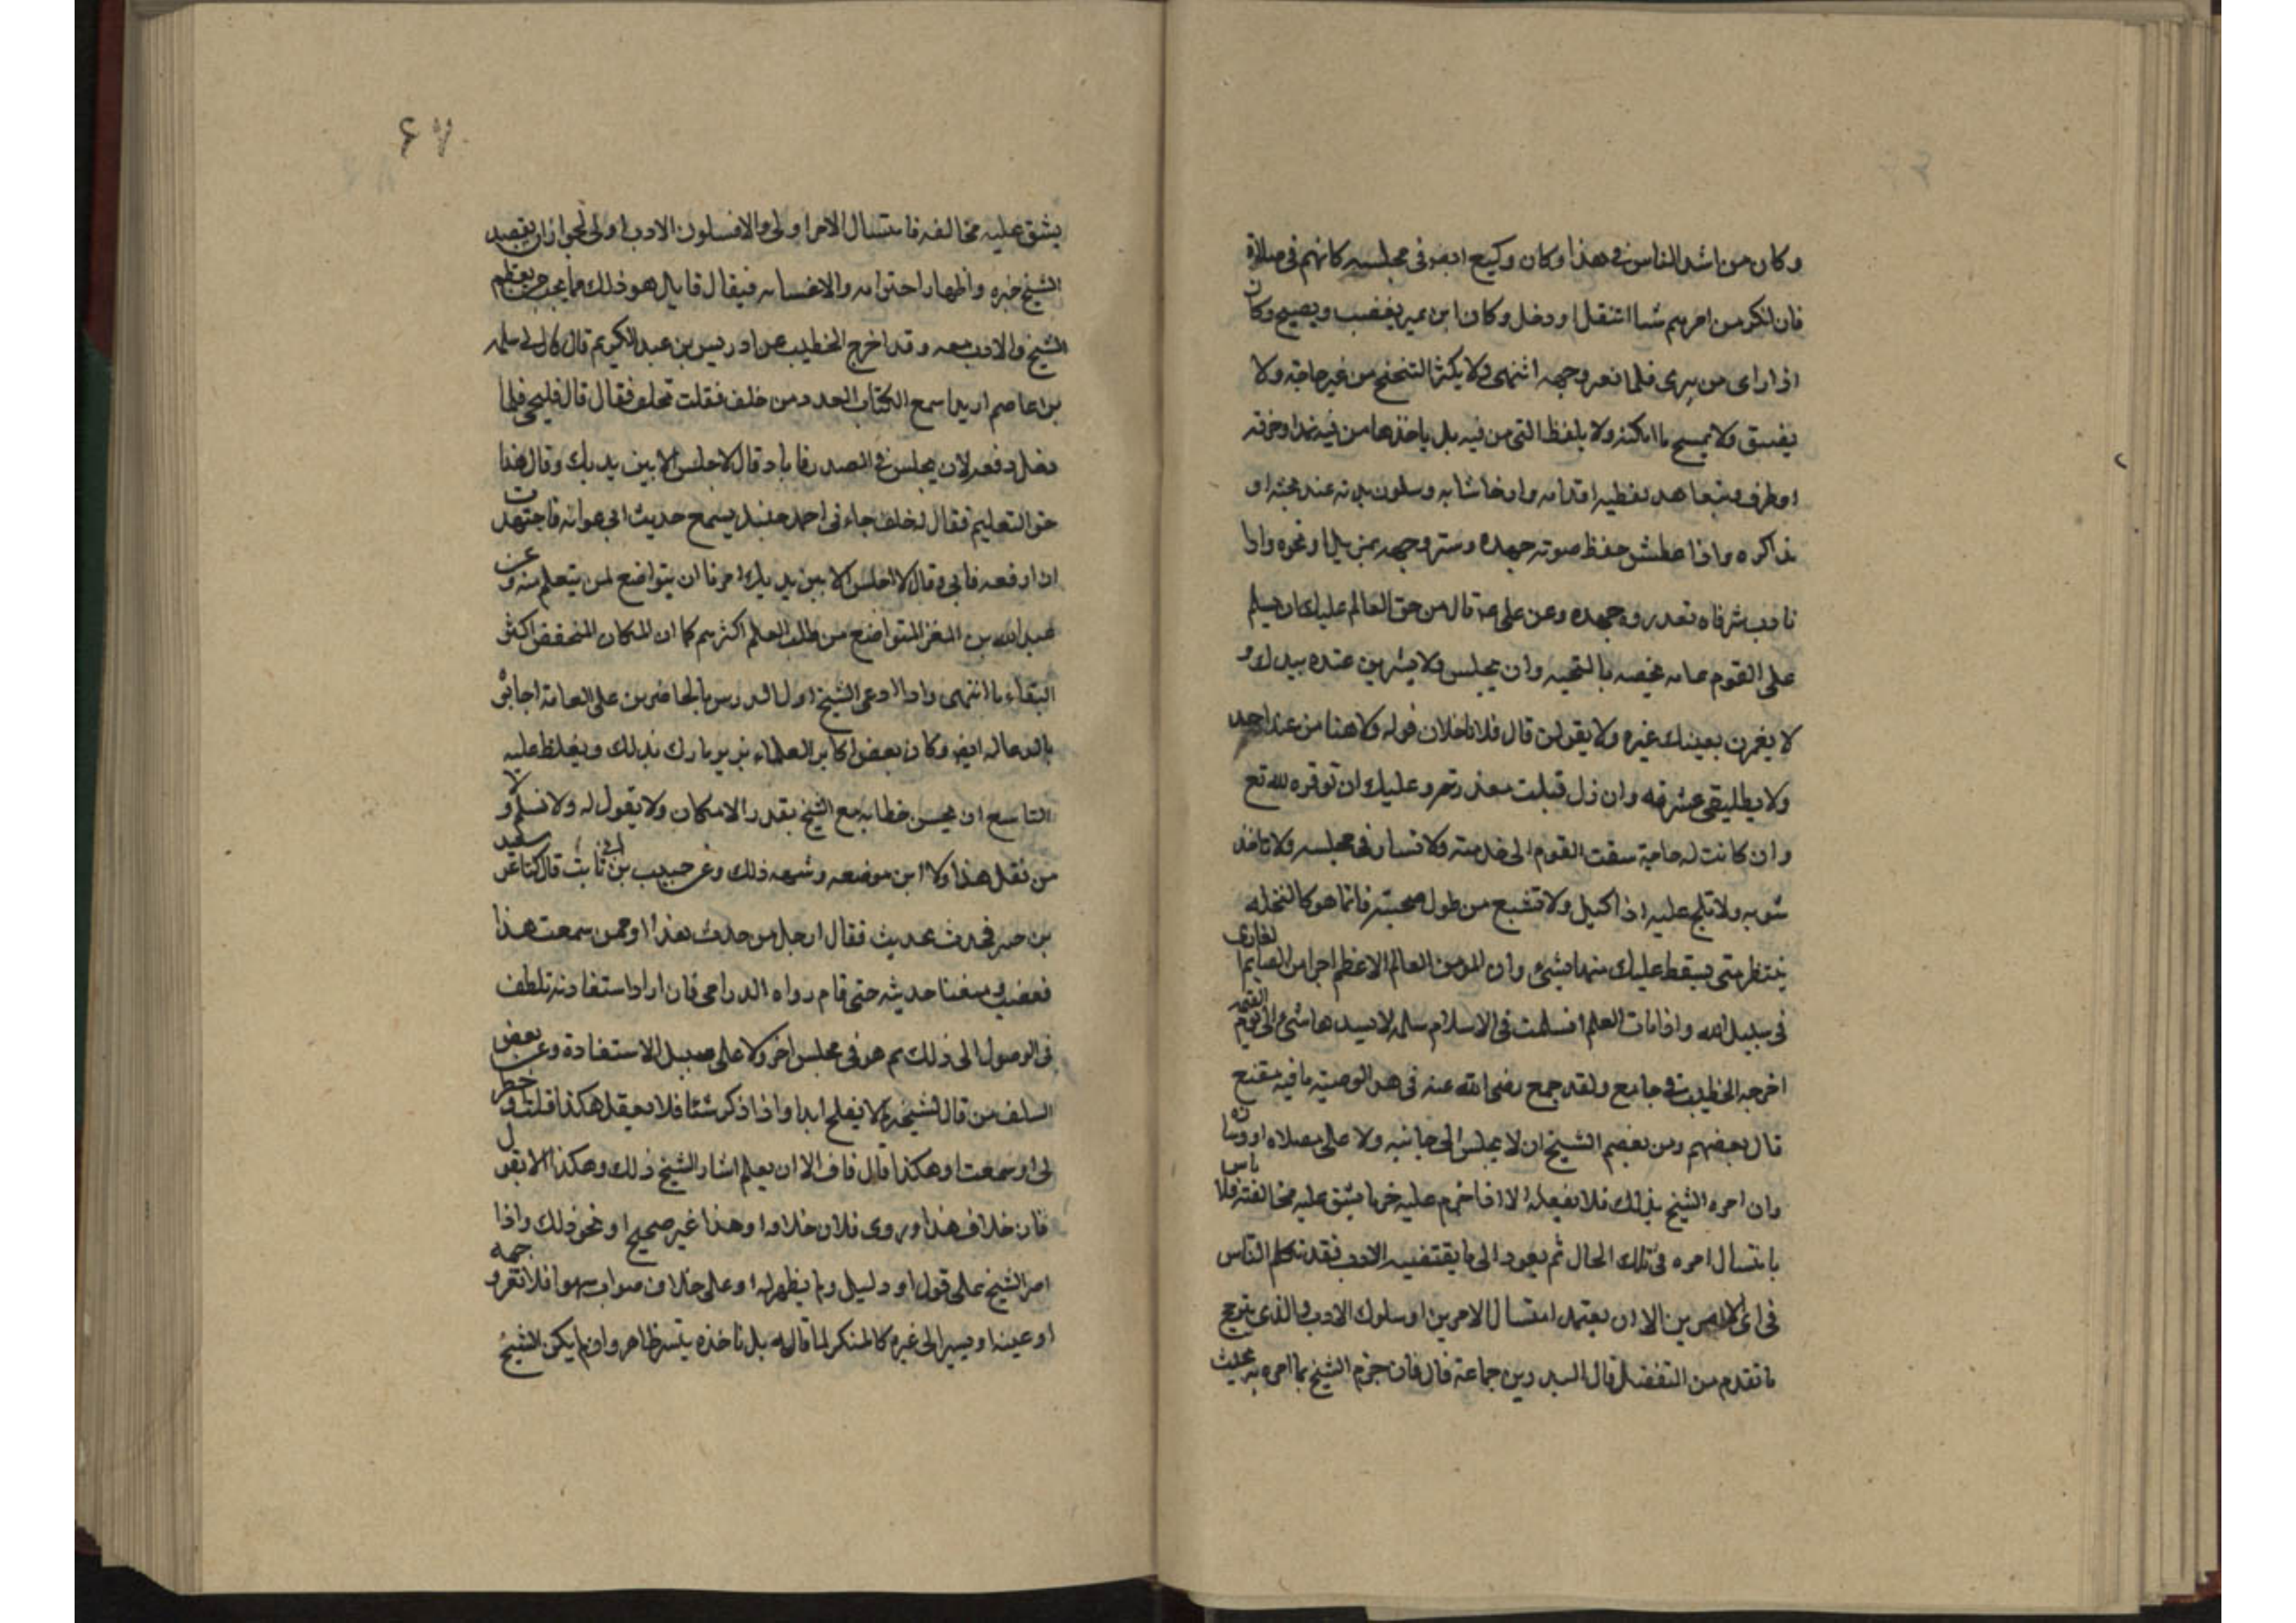 وكان من اشد الناس في هذا وكان وكيع ايضا في مجلسه كانهم في صلاة
فان انكر من امرهم شيا انتقل او دخل وكان ابن نمير يغضب ويصيح وكان
اذا راى من يبرى قلما تغير وجهه انتهى ولا يكثر التنحنح من غير حاجة ولا
يبصق ولا يتمخط ما امكنه ولا يلفظ التي من فيه بل ياخذها من فيه بمنديل او خرقة
او طرف ويتعاهد تغطية اقدامه وارخا ثيابه وسكون يديه عند بحثه او
مذاكرة واذا عطس خفض صوته جهده وستر وجهه بمنديل او نحوه واذا
تاوب ستر فاه بعد رده جهده وعن علي قال من حق العالم عليك ان تسلم
على القوم عامه وتخصه بالتحيه وان تجلس ولا تشيرن عنده بيدك و
لا تغمزن بعينك غيره ولا تقولن قال فلان خلاف قوله ولا عندا من عند احد
ولا تطلبن عثرته وان زل قبلت معذرته وعليك ان توقره لله تع
وان كانت له حاجة سبقت القوم الى خدمته ولا تسار في مجلسه ولا تاخذ
بثوبه ولا تلح عليه اذا كسل ولا تشبع من طول صحبته فانما هو كالنخله
تنتظر متى يسقط عليك منها شيء وان المومن العالم لاعظم اجرا من الصايم الغازى
في سبيل الله واذا مات العالم انثلمت في الاسلام ثلمه لا يسدها شيء الى يوم القيمه
اخرجه الخطيب في جامع ولقد جمع رضى الله عنه في هذه الوصيه ما فيه مقنع
قال بعضهم ومن تعظيم الشيخ ان لا يجلس الى جانبه ولا على مصلاه او وسادته
وان امره الشيخ بذلك فلا يفعله الا اذا جزم عليه جزما يشق عليه مخالفته فلا باس
بامتثال امره في تلك الحال ثم يعود الى ما يقتضيه الادب فقد تكلم الناس
في اى الامرين اولى ان يعتمد امتثال الامر او سلوك الادب والذى يترجح
ما تقدم من التفصيل قال البدر بن جماعة قال فان جزم الشيخ بما امره به بحيث
٦٧
يشق عليه مخالفه فامتثال الامر اولى والا فسلوك الادب اولى لجواز ان يقصد
الشيخ خيره واظهار احترامه والاعتناء به فيقابل هو ذلك بما يجب من تعظيم
الشيخ والادب معه وقد اخرج الخطيب عن ادريس بن عبد الكريم قال قال لي سلمه
بن عاصم اريد اسمع الكتاب العدد من خلف فقلت لخلف فقال قال فليجي فلما
دخل رفعه لان يجلس في الصدر فابا وقال لا اجلس الا بين يديك وقال هذا
حق التعليم فقال له خلف جاءني احمد بن حنبل يسمع حديث ابي عوانه فاجتهدت
ان ارفعه فابى وقال لا اجلس الا بين يديك امرنا ان نتواضع لمن نتعلم منه وعن
عبد الله بن المعتز المتواضع من طلاب العلم اكثرهم كما ان المكان المنخفض اكثر
البقاء ماء انتهى واذا دعى الشيخ اول الدرس بالحاضرين على العادة اجابوه
بالدعا له ايضا وكان بعض اكابر العلماء يزبر تارك ذلك ويغلظ عليه
التاسع ان يحسن خطابه مع الشيخ بقدر الامكان ولا يقول له ولا نسلم ولا
من نقل هذا ولا اين موضعه وشبه ذلك وعن حبيب بن ابى ثابت قال كنا عند سعيد
بن جبير فحدث بحديث فقال له رجل من حدثك هذا او ممن سمعت هذا
فغضب ومنعنا حديثه حتى قام رواه الدرامى فان اراد استفادته تلطف
في الوصول الى ذلك ثم هو في مجلس اخر ولا على سبيل الاستفادة وعن بعض
السلف من قال لشيخه لم لا يفلح ابدا واذا ذكر شيئا فلا يقل هكذا قلت وخطر
لي او سمعت او هكذا قال فلان الا ان يعلم ايثار الشيخ ذلك وهكذا لا يقول
قال فلان خلاف هذا او روى فلان خلافه او هذا غير صحيح او نحو ذلك واذا
اصر الشيخ على قول او دليل ولم يظهر له او على خلاف صواب سهوا فلا تغير وجهه
او عينه او يشير الى غيره كالمنكر لما قاله بل ناخذه ببشر ظاهر وان لم يكن الشيخ